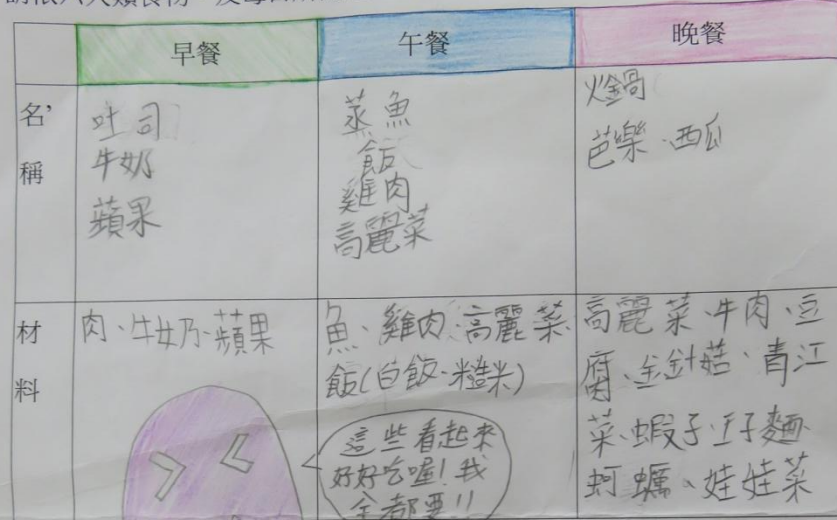 早餐 午餐 晚餐
名稱
吐司
牛奶
蘋果
蒸魚
飯
雞肉
高麗菜
火鍋
芭樂、西瓜
材料
肉、牛奶、蘋果
魚、雞肉、高麗菜
飯(白飯、糙米)
高麗菜、牛肉、豆
腐、金針菇、青江
菜、蝦子、王子麵
蚵蠣、娃娃菜
這些看起來
好好吃喔!我
全都要!!